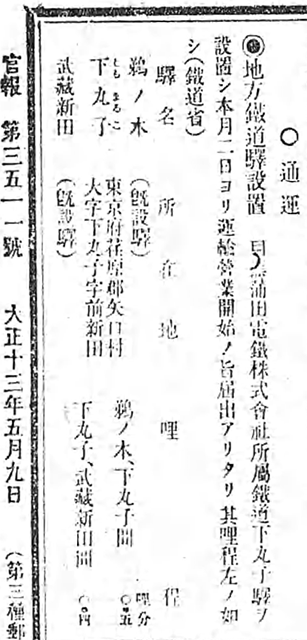 ○通運
◉地方鐵道驛設置 目蒲田電鐵株式會社所屬鐵道下丸子驛ヲ
設置シ本月二日ヨリ運輸營業開始ノ旨届出アリタリ其哩程左ノ如
シ(鐵道省)
驛名 所在地 哩程
哩分
鵜ノ木 (既設驛)
鵜ノ木、下丸子間 〇・五
しもまるこ
下丸子 東京府荏原郡矢口村
大字下丸子字前新田
下丸子、武藏新田間 〇・四
武藏新田 (既設驛)
官報 第三五一一號 大正十三年五月九日 (第三種郵